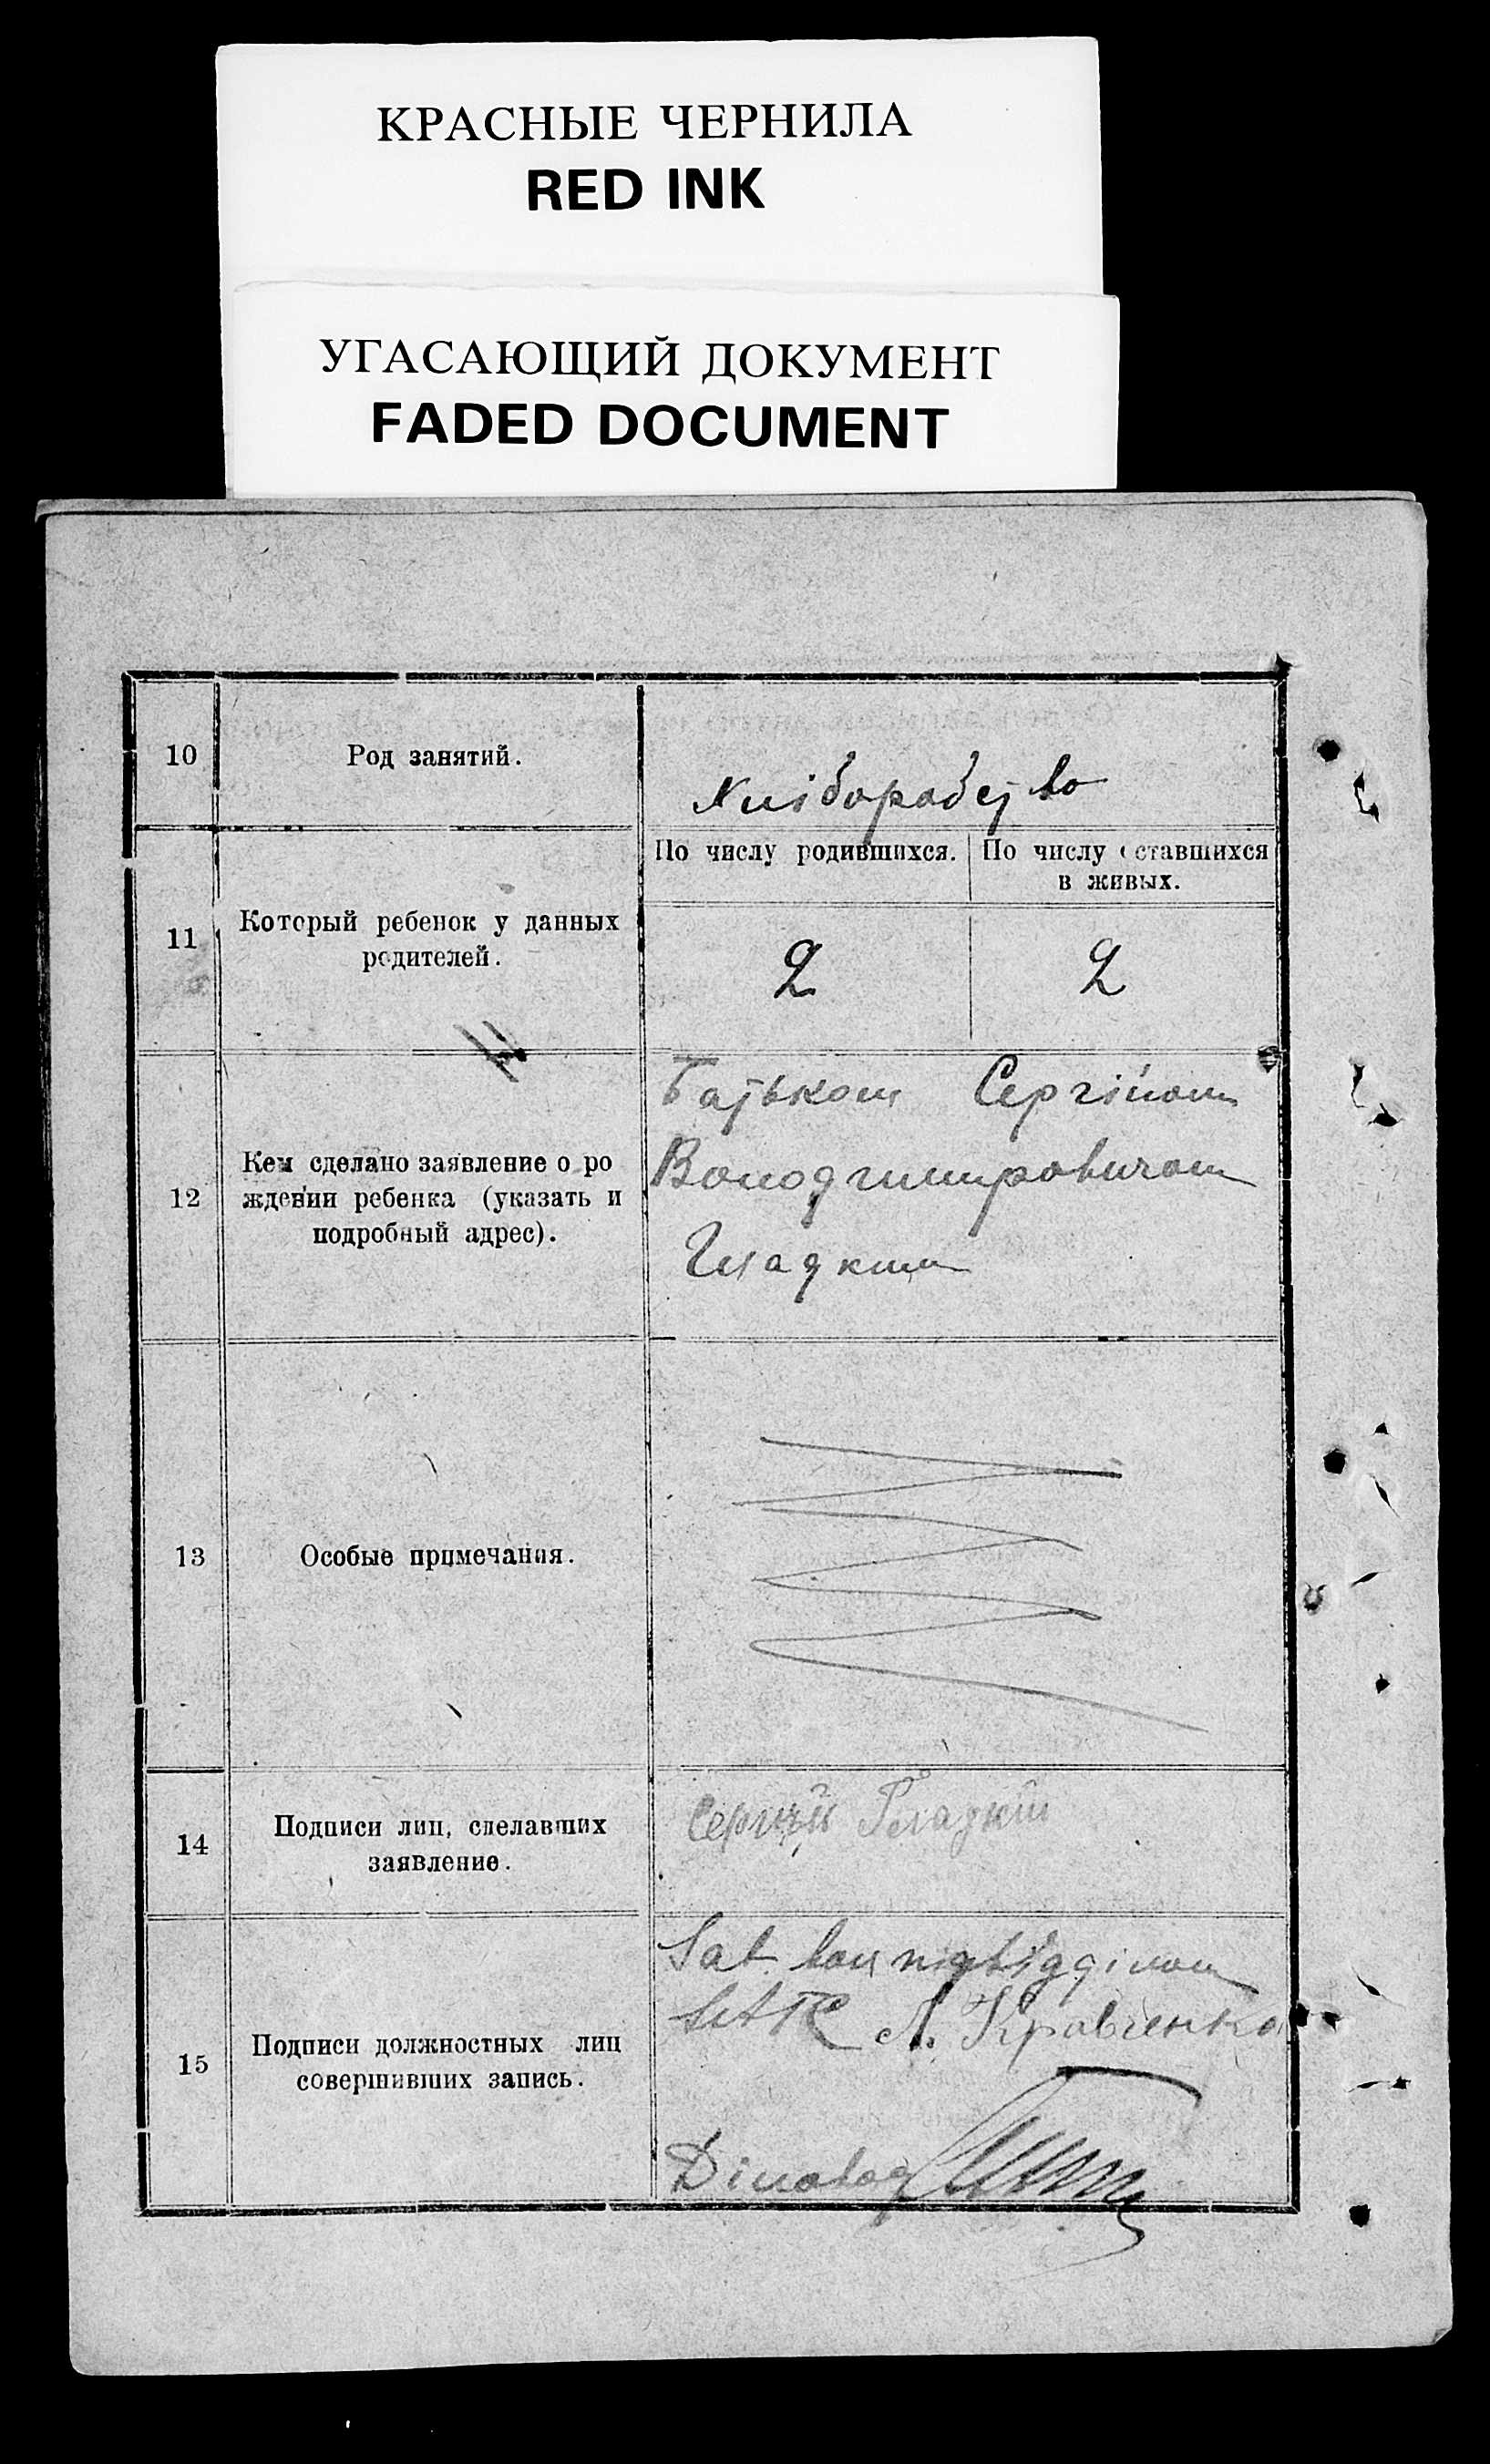 КРАСНЫЕ ЧЕРНИЛА
RED INK
УГАСАЮЩИЙ ДОКУМЕНТ
FADED DOCUMENT
10
Род занятий.
Хліборобство
11
Который ребенок у данных
родителей.
По числу родившихся.
2
По числу оставшихся
в живых.
2
12
Кем сделано заявление о ро
ждении ребенка (указать и
подробный адрес).
Батьком Сергіном
Володимировичом
Гладким
13
Особые примечания.
14
Подписи лиц, сделавших
заявление.
Сергій Гладкій
15
Подписи должностных лиц
совершивших запись.
Зав.
А. Кравченко
Діловод